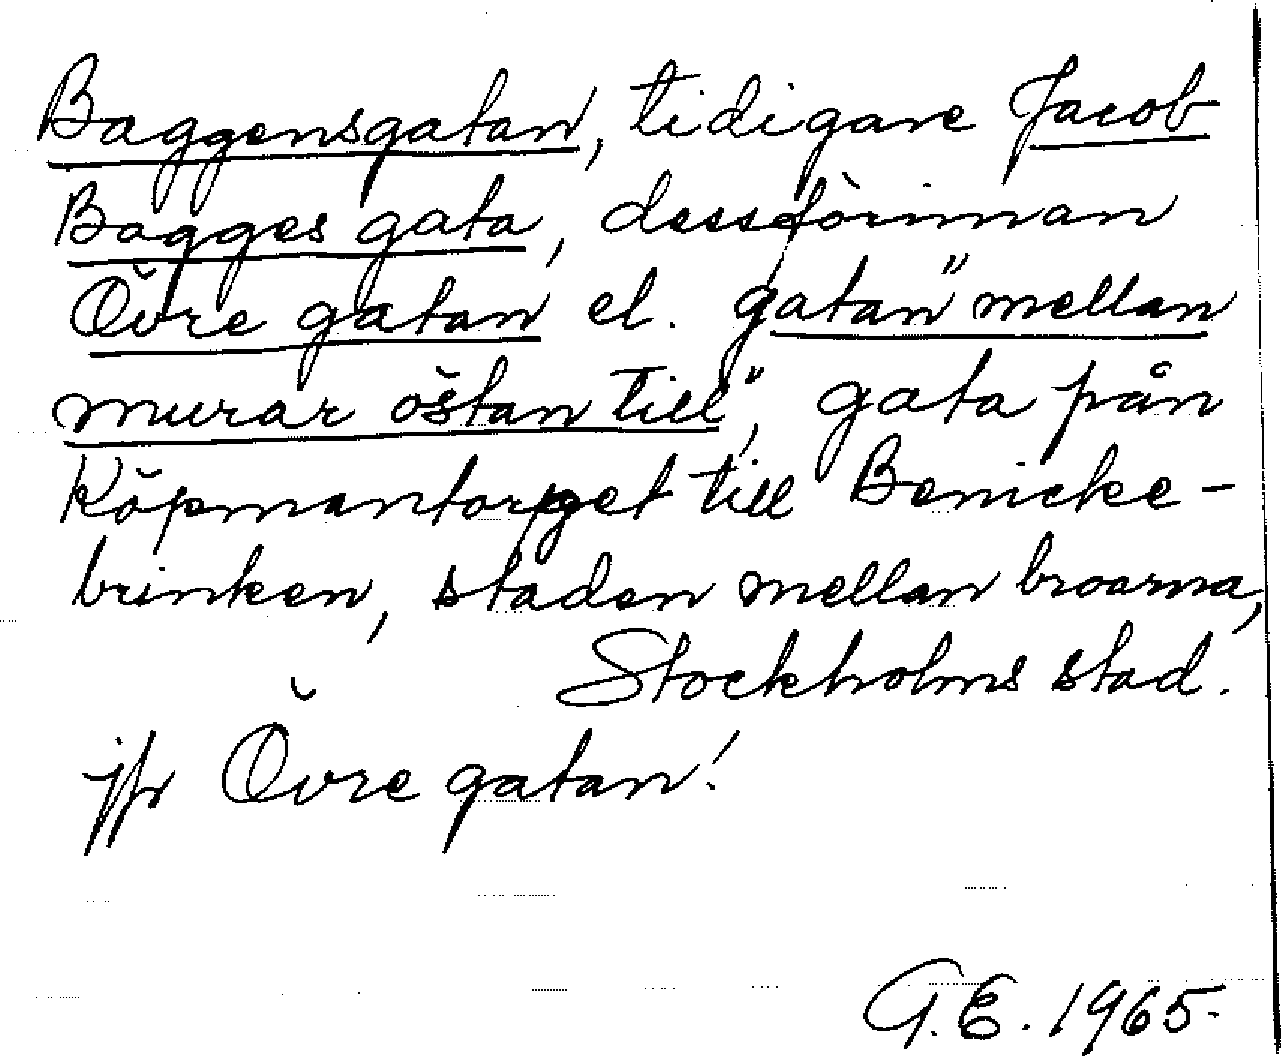 Baggensgatan, tidigare Jacob
Bagges gata, dessförinnan
Övre gatan el. gatan "mellan
murar östan till", gata från
Köpmantorget till Benicke-
brinken, staden mellan broarna,
Stockholms stad.
jfr Övre gatan!
G.E. 1965.